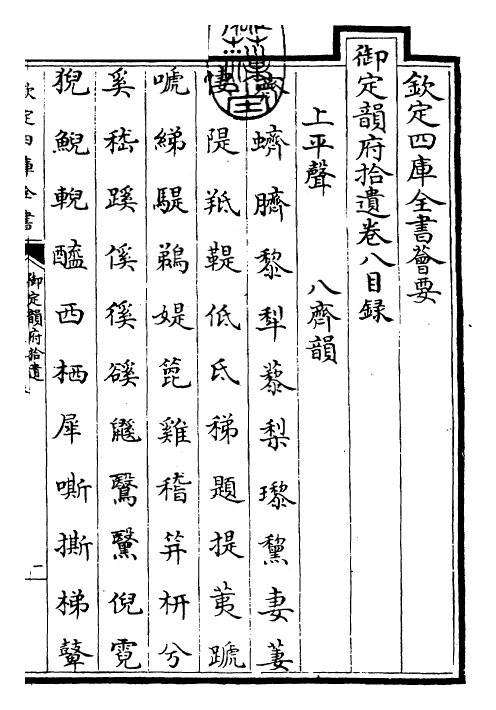 欽定四庫全書薈要
御定韻府拾遺卷八目録
上平聲　八齊韻
蠐臍黎犁藜梨瓈黧妻萋
悽隄羝鞮低氐稊題提荑蹏
嗁綈騠鵜媞箆雞稽笄枅兮
奚嵇蹊徯傒谿鼷鷖黳倪霓
猊鯢輗醯西栖犀嘶撕梯鼙
欽定四庫全書
御定韻府拾遺